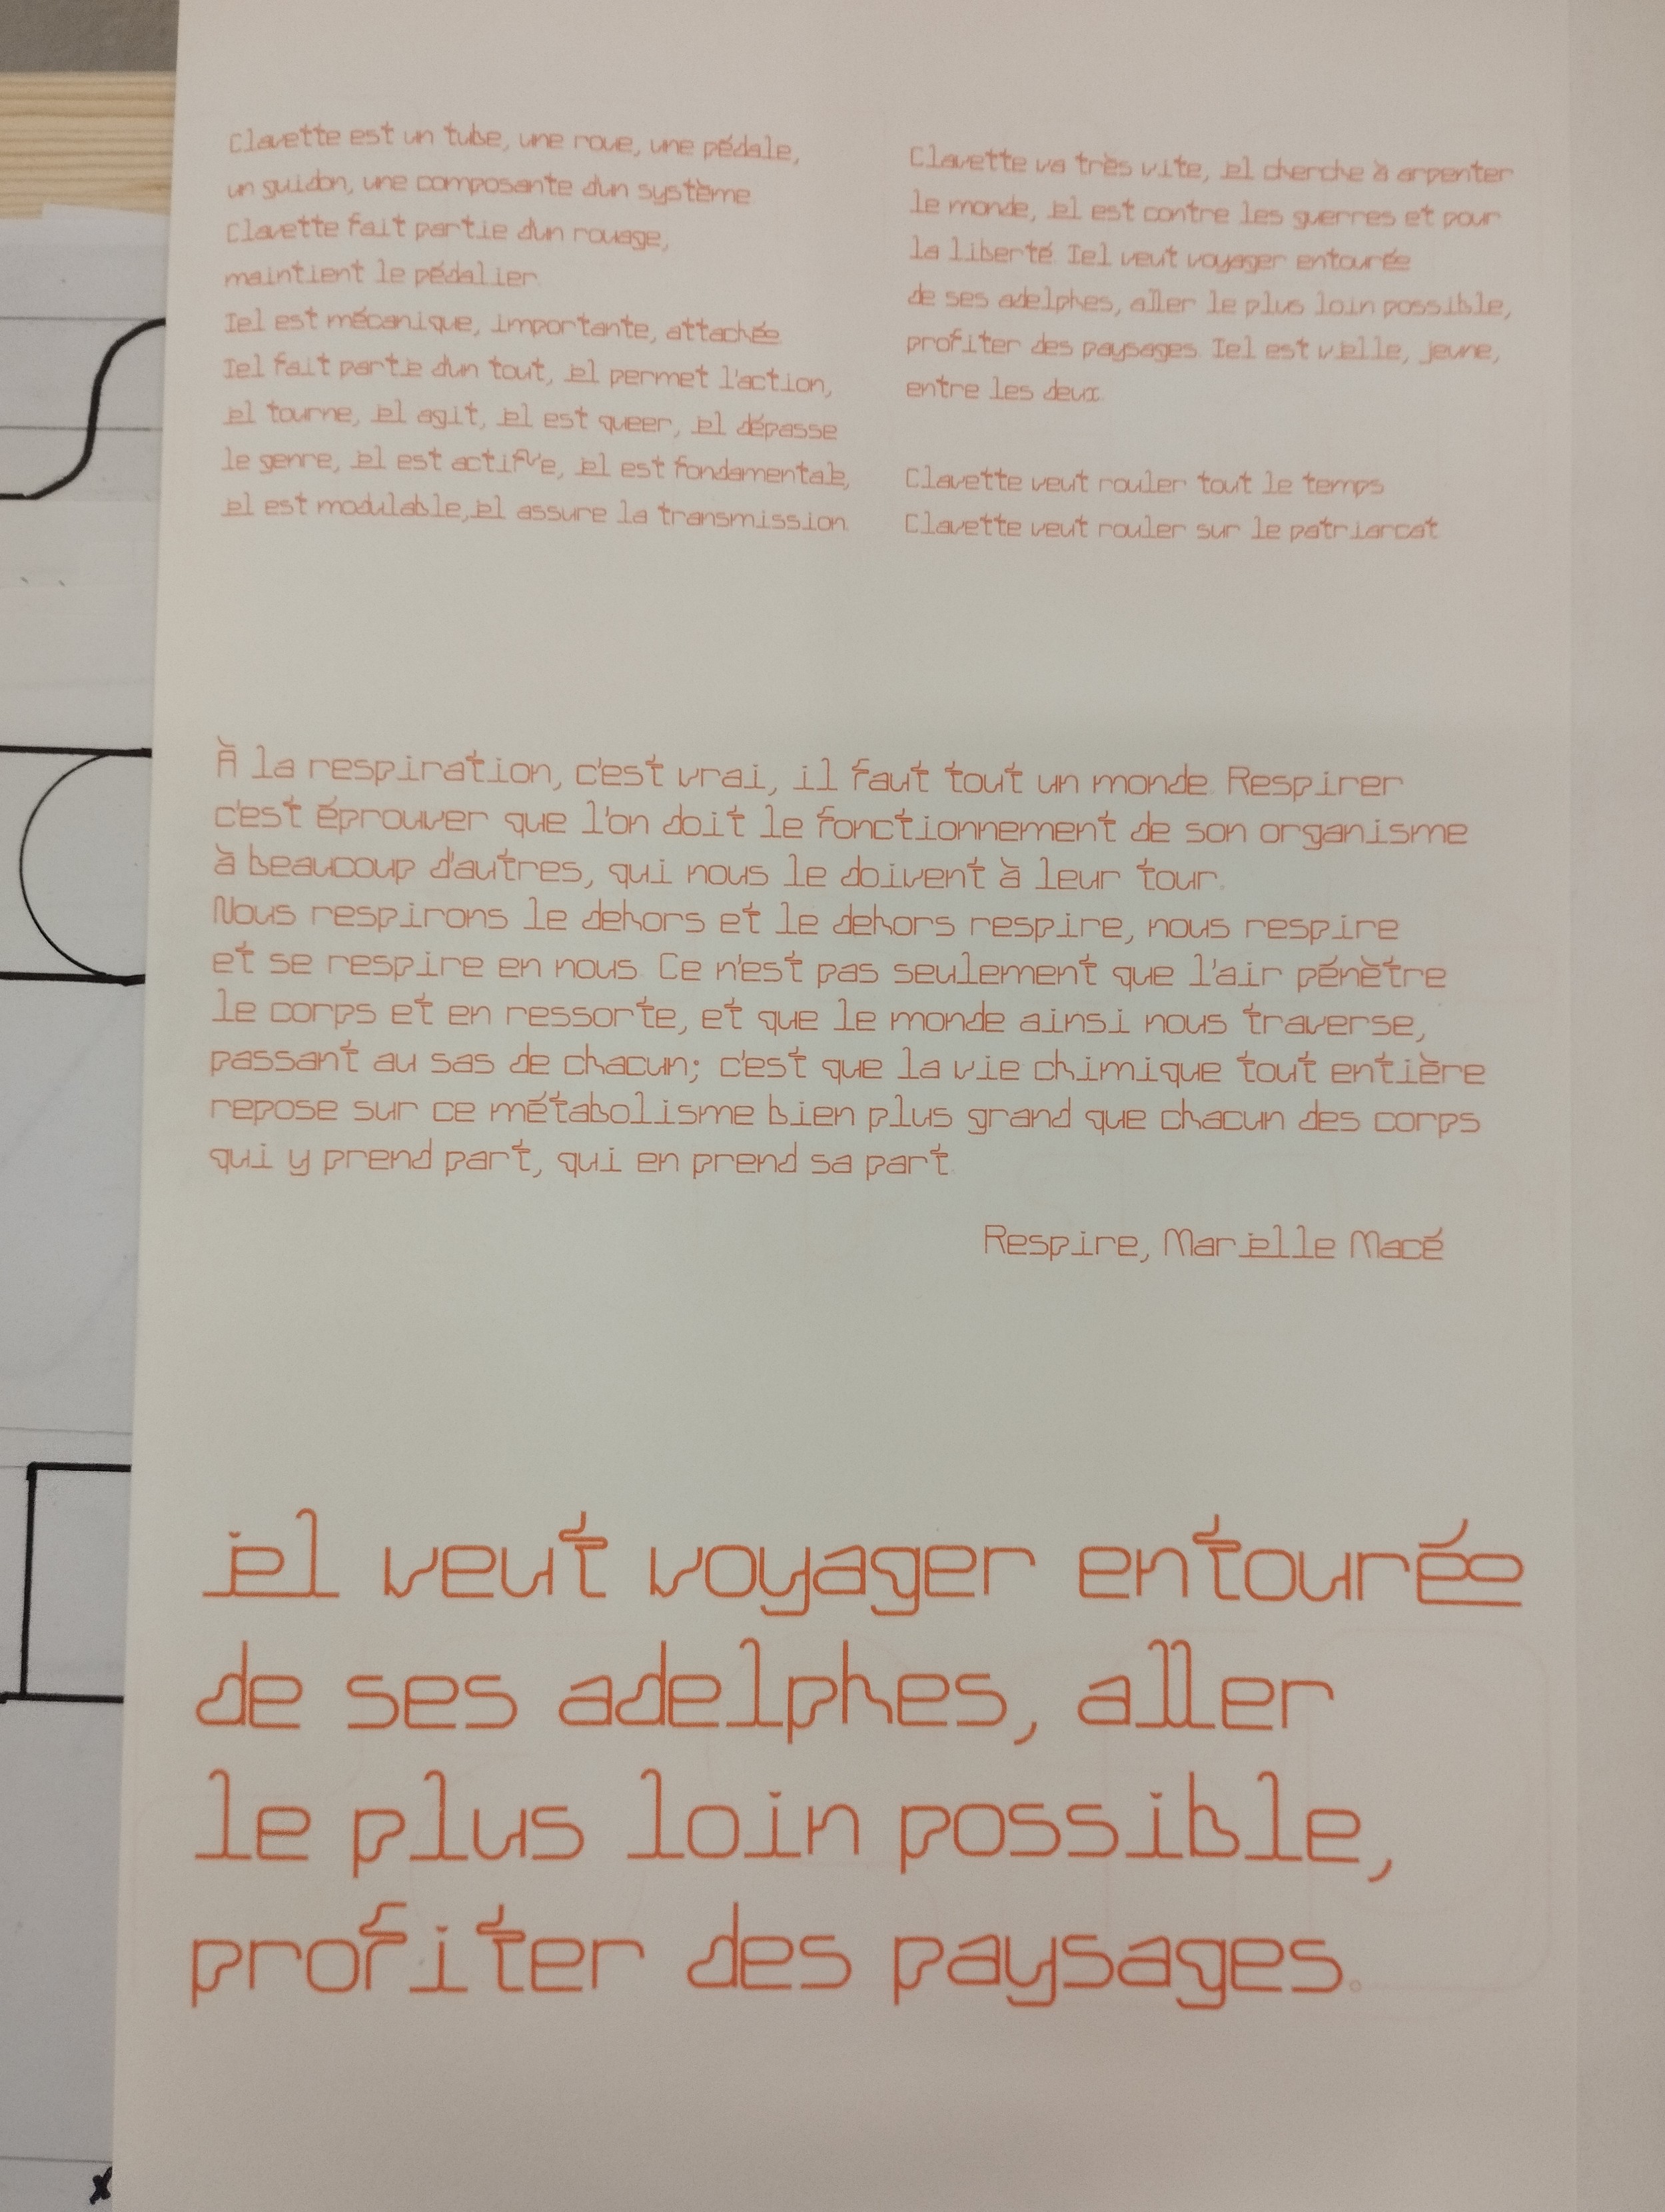 Clavette est un tube, une roue, une pédale,
un guidon, une composante dun système
Clavette fait partie dun rouage,
maintient le pédalier.
Iel est mécanique, importante, attachée
Iel fait partie dun tout, iel permet l'action,
iel tourne, iel agit, iel est queer, iel dépasse
le genre, iel est actifve, iel est fondamentale,
iel est modulable, iel assure la transmission.
Clavette va très vite, iel cherche à arpenter
le monde, iel est contre les guerres et pour
la liberté. Iel veut voyager entourée
de ses adelphes, aller le plus loin possible,
profiter des paysages. Iel est vielle, jeune,
entre les deux.
Clavette veut rouler tout le temps
Clavette veut rouler sur le patriarcat
À la respiration, c'est vrai, il faut tout un monde. Respirer
c'est éprouver que l'on doit le fonctionnement de son organisme
à beaucoup d'autres, qui nous le doivent à leur tour.
Nous respirons le dehors et le dehors respire, nous respire
et se respire en nous. Ce n'est pas seulement que l'air pénètre
le corps et en ressorte, et que le monde ainsi nous traverse,
passant au sas de chacun; c'est que la vie chimique tout entière
repose sur ce métabolisme bien plus grand que chacun des corps
qui y prend part, qui en prend sa part.
Respire, Marielle Macé
iel veut voyager entourée
de ses adelphes, aller
le plus loin possible,
profiter des paysages.